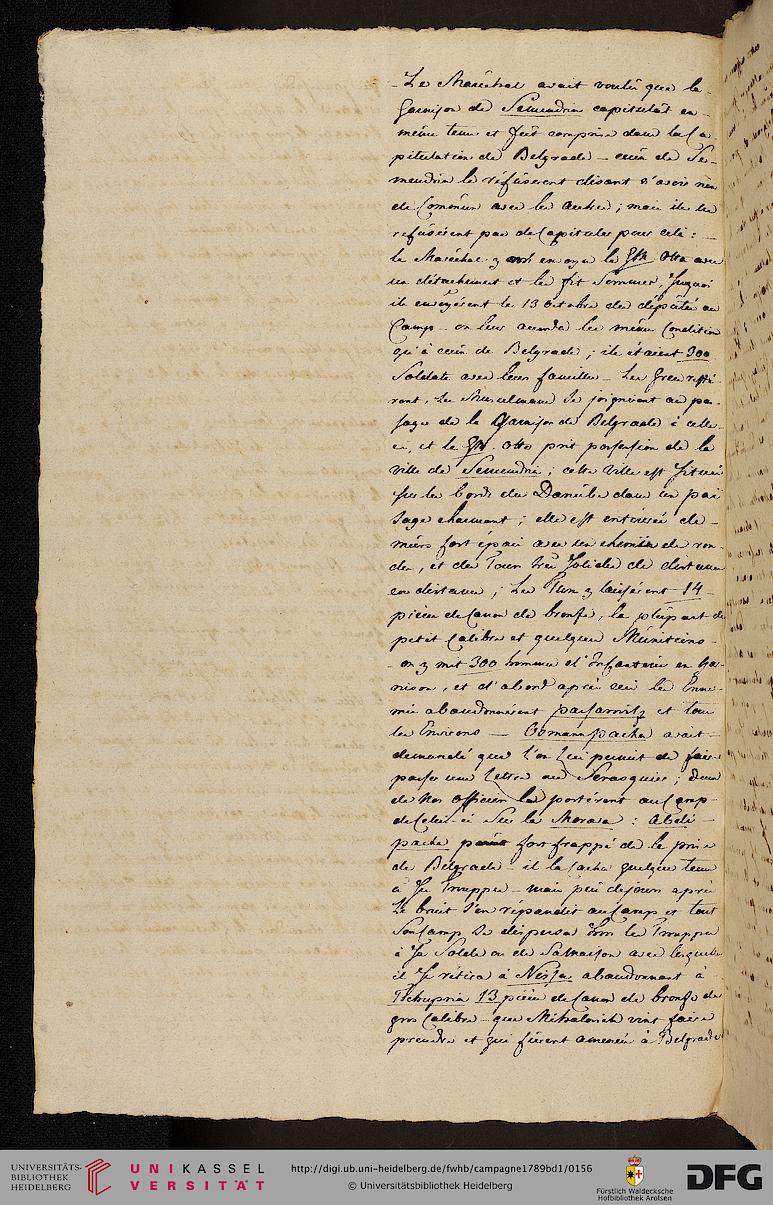 Le Maréchal avait voulû que la
Garnison de Semendria capitulât en
même tems et fut comprise dans la Ca
pitulation de Belgrade – ceux de Se-
mendria le refûserent disant n'avoir rien
de Commun avec les autres ; mais ils ne
refûsérent pas de Capituler pour celà : –
le Maréchal y envoya le Otto avec
un détachement et les fit Sommer,
ils envoyérent le 13 Octobre des députés au
Camp – on leur accorda les mêmes Conditions
qu'à ceux de Belgrade ; ils étaient 300
Soldats avec leurs familles – Les Grecs resté-
rent, les Musulmans se joignirent au pas-
sage de la Garnison de Belgrade à celle-
ci, et le Otto prit possession de la
ville de Semendria ; cette ville est située
sur les bords du Danube dans un païs
sage charmant ; elle est entourée de –
murs fort épais avec un chemin de ron-
de, et des Tours très solides de distance
en distance ; Les Turcs y laissérent 14 –
pièces de Canon de bronse, la plûpart de
petit Calibre et quelques Munitions –
– on y mit 300 hommes d'Infanterie en Gar-
nison, et d'abord après ceci les Enne-
mis abandonnérent passarovitz et tous
les Environs — Osmann pacha avait –
demandé que l'on Lui permit de faire
passer une Lettre au Serasquier ; deux
de Nos Officiers la portérent au Camp –
de Celui-ci sur la Morava : Abdi –
pacha parût fort frappé de la prise
de Belgrade – il la cacha quelque tems
à ses Trouppes – mais peu de jours après
Le bruit s'en répandit au Camp et tout
son Camp se dispersa hors les Trouppes
à sa Solde ou de sa Maison avec lesquelles
il se rétira à Nissa abandonnant à –
Tschupria 13 pièces de Canon de bronse de
gros Calibre – que Mihalovich vint faire
prendre et qui fûrent amenées à Belgrade
UNIVERSITÄTS-
BIBLIOTHEK
HEIDELBERG
UNIKASSEL
VERSITÄT
http://digi.ub.uni-heidelberg.de/fwhb/campagne1789bd1/0156
© Universitätsbibliothek Heidelberg
Fürstlich Waldecksche
Hofbibliothek Arolsen
DFG